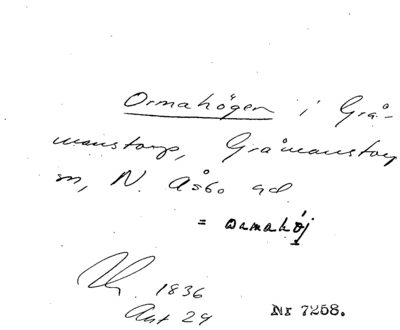 Ormahögen i Grå-
manstorp, Gråmanstorp
sn, N. Åsbo hd.
= ormahöj
1836
Akt 29
Nr 7258.